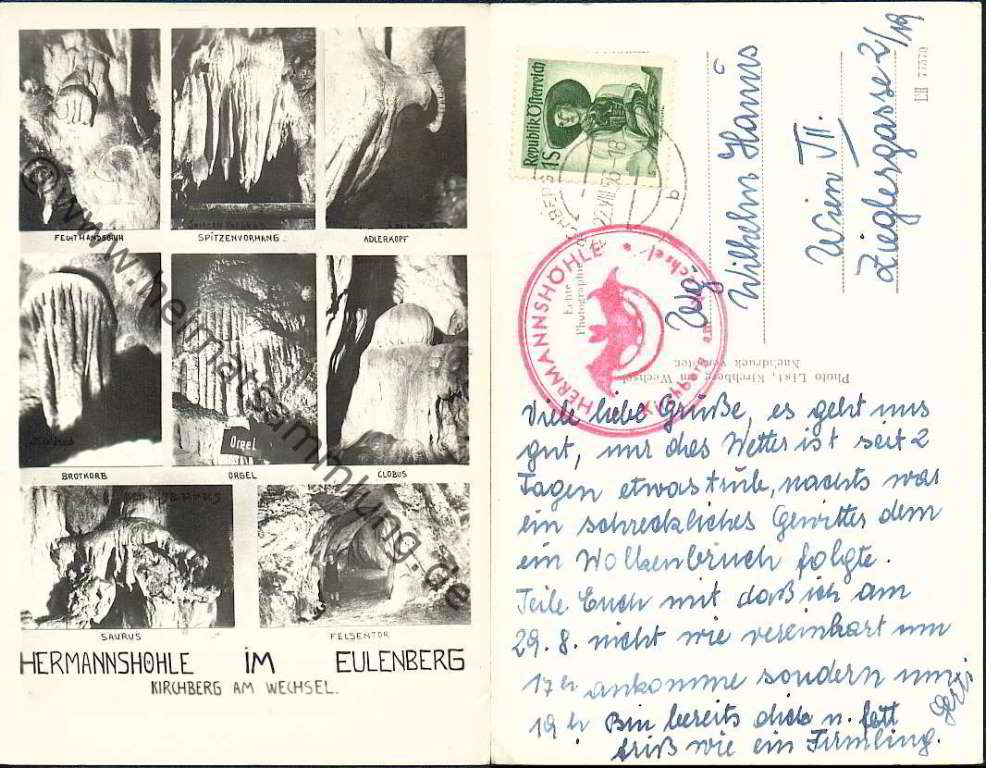 FECHTHANDSCHUH
SPITZENVORHANG.
ADLERKOPF
Orgel
BROTKORB
ORGEL
GLOBUS
SAURUS
FELSENTOR
HERMANNSHÖHLE IM EULENBERG
KIRCHBERG AM WECHSEL.
©www.heimatsammlung.de
Republik Österreich
1S
22.VIII.56-18
b
HERMANNSHÖHLE
Kirchberg a.m. Wechsel
Echte
Photographie
Photo List, Kirchberg am Wechsel
Nachdruck verboten
Wilhelm
Wien VII.
Zieglergasse 2/19
Viele liebe Grüße, es geht uns
gut, nur das Wetter ist seit 2
Tagen etwas trüb, nachts war
ein schreckliches Gewitter dem
ein Wolkenbruch folgte.
Teile Euch mit daß ich am
29.8. nicht wie vereinbart um
17 h ankomme sondern um
19 h Bin bereits dick u. fett
wie ein Firmling.
Gerti